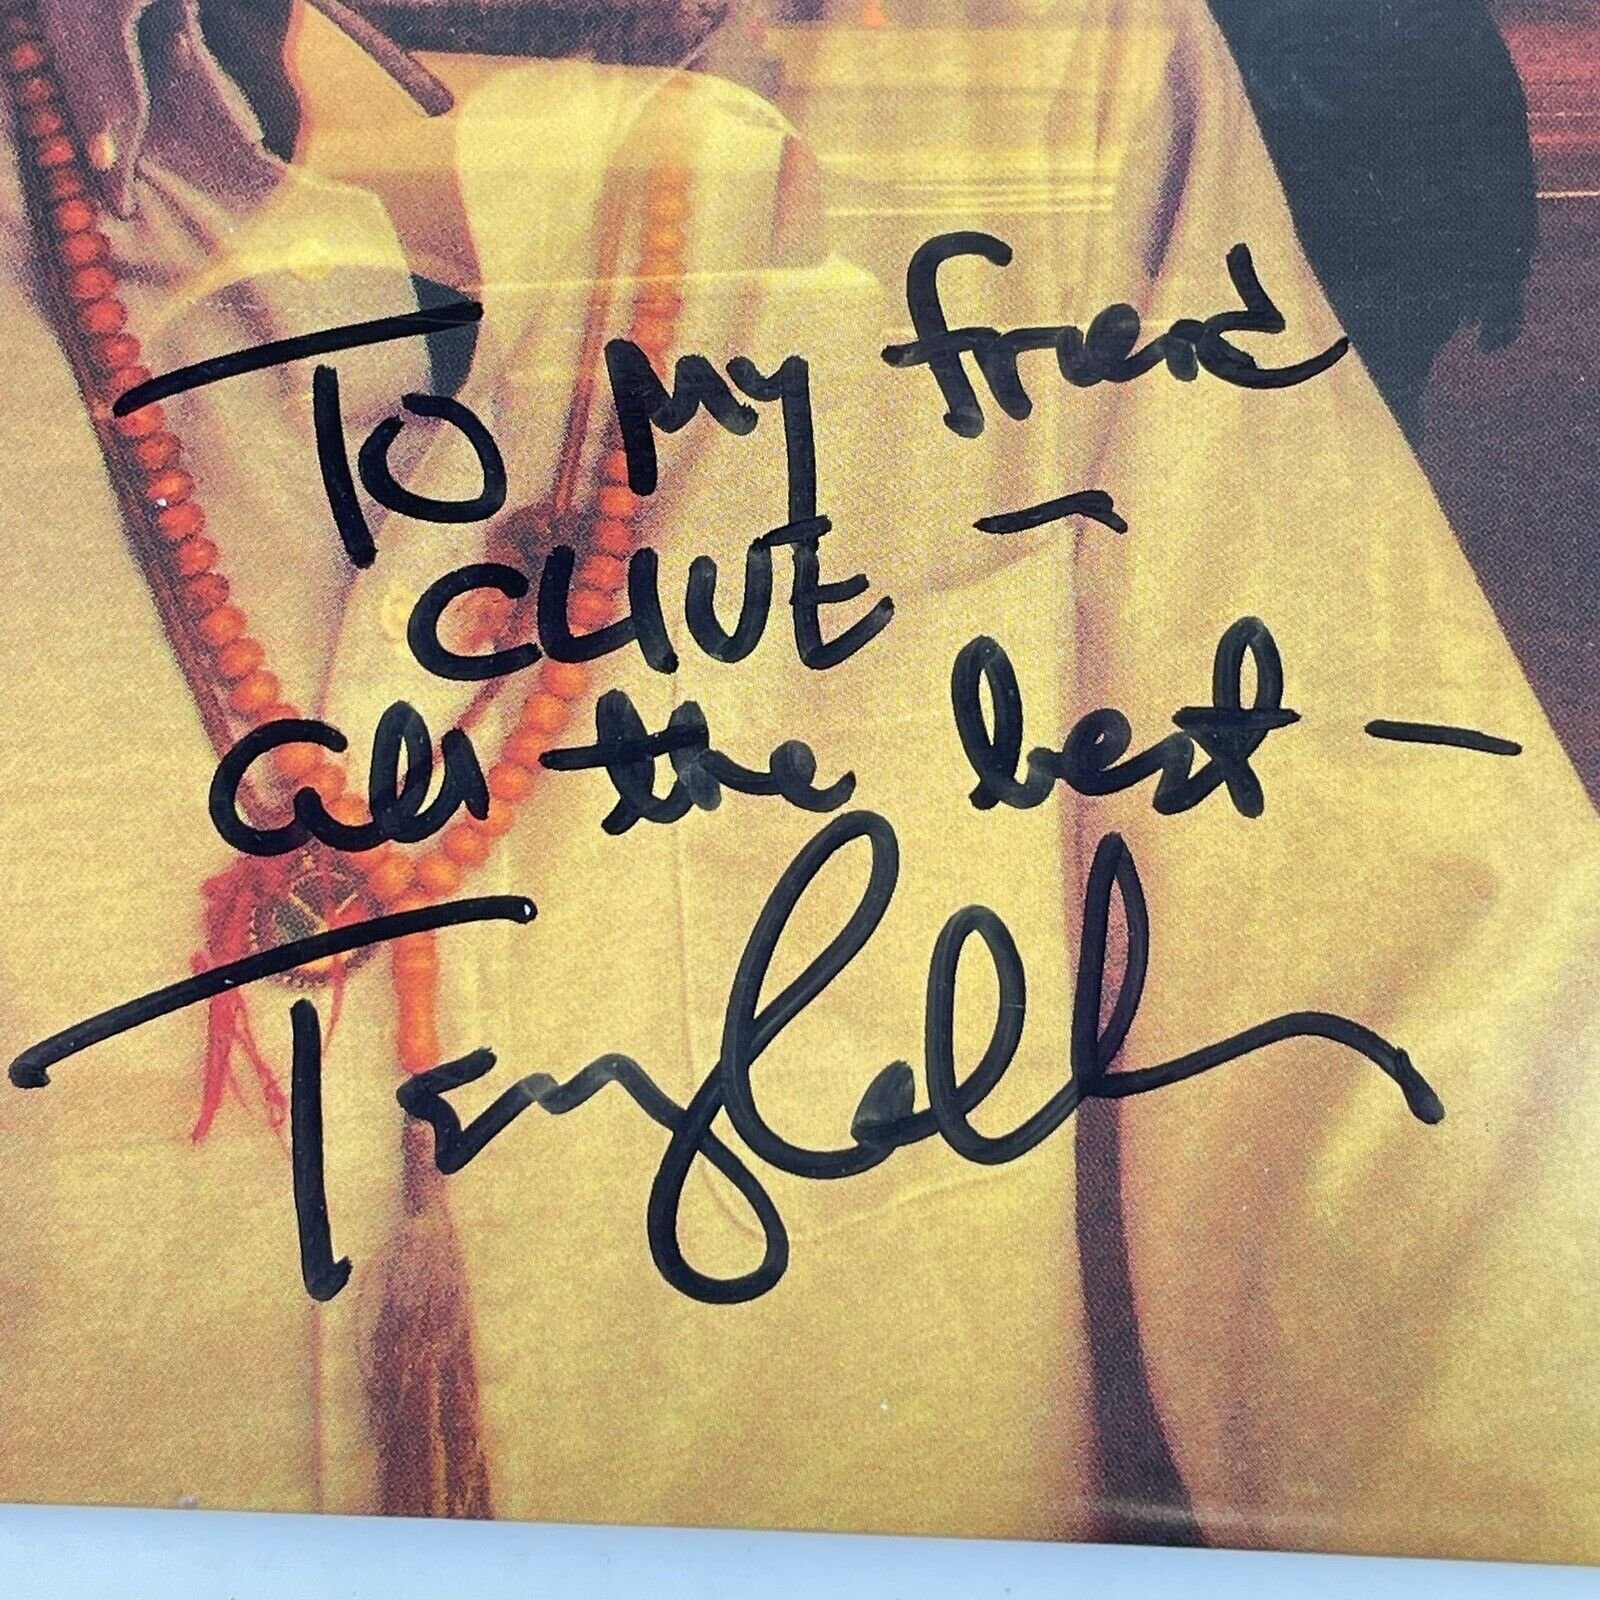 To My friend
CLIVE -
all the best -
Terry